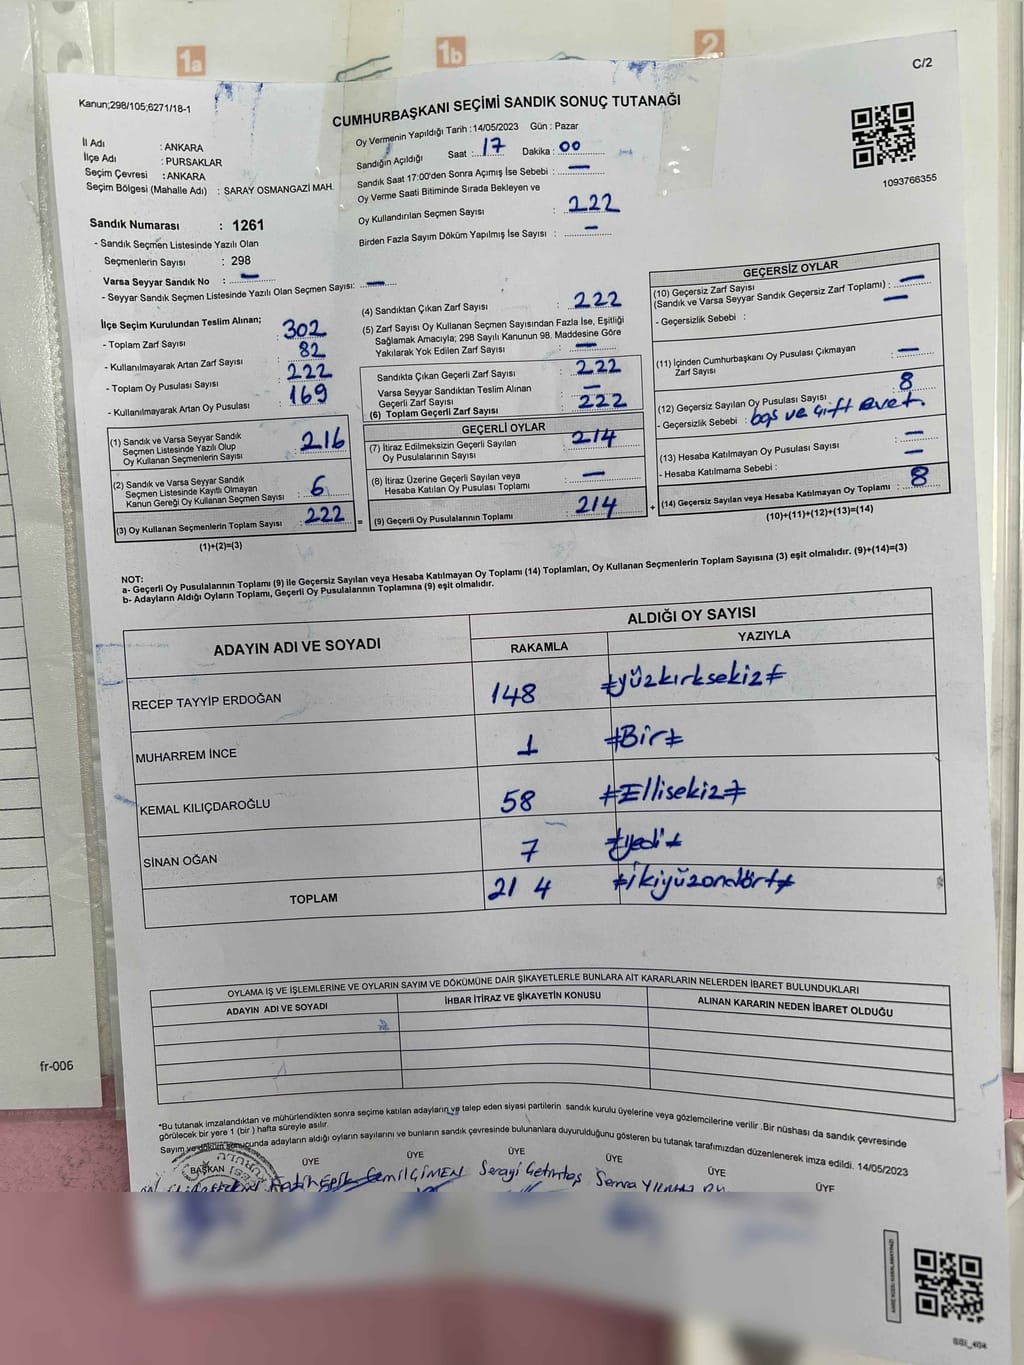 1a
1b
2
C/2
Kanun;298/105;6271/18-1
CUMHURBAŞKANI SEÇİMİ SANDIK SONUÇ TUTANAĞI
Oy Vermenin Yapıldığı Tarih :14/05/2023 Gün : Pazar
İl Adı : ANKARA
İlçe Adı : PURSAKLAR
Seçim Çevresi : ANKARA
Seçim Bölgesi (Mahalle Adı) : SARAY OSMANGAZİ MAH.
Sandığın Açıldığı Saat : 17 Dakika : 00
Sandık Saat 17:00'den Sonra Açımış İse Sebebi : —
Oy Verme Saati Bitiminde Sırada Bekleyen ve
Oy Kullandırılan Seçmen Sayısı : 222
Birden Fazla Sayım Döküm Yapılmış İse Sayısı : —
1093766355
Sandık Numarası : 1261
- Sandık Seçmen Listesinde Yazılı Olan
Seçmenlerin Sayısı : 298
Varsa Seyyar Sandık No : —
- Seyyar Sandık Seçmen Listesinde Yazılı Olan Seçmen Sayısı: —
İlçe Seçim Kurulundan Teslim Alınan;
- Toplam Zarf Sayısı : 302
- Kullanılmayarak Artan Zarf Sayısı : 82
- Toplam Oy Pusulası Sayısı : 222
- Kullanılmayarak Artan Oy Pusulası : 169
(1) Sandık ve Varsa Seyyar Sandık
Seçmen Listesinde Yazılı Olup
Oy Kullanan Seçmenlerin Sayısı : 216
(2) Sandık ve Varsa Seyyar Sandık
Seçmen Listesinde Kayıtlı Olmayan
Kanun Gereği Oy Kullanan Seçmen Sayısı : 6
(3) Oy Kullanan Seçmenlerin Toplam Sayısı : 222 =
(1)+(2)=(3)
(4) Sandıktan Çıkan Zarf Sayısı : 222
(5) Zarf Sayısı Oy Kullanan Seçmen Sayısından Fazla İse, Eşitliği
Sağlamak Amacıyla; 298 Sayılı Kanunun 98. Maddesine Göre
Yakılarak Yok Edilen Zarf Sayısı : —
Sandıkta Çıkan Geçerli Zarf Sayısı : 222
Varsa Seyyar Sandıktan Teslim Alınan
Geçerli Zarf Sayısı : —
(6) Toplam Geçerli Zarf Sayısı : 222
GEÇERLİ OYLAR
(7) İtiraz Edilmeksizin Geçerli Sayılan
Oy Pusulalarının Sayısı : 214
(8) İtiraz Üzerine Geçerli Sayılan veya
Hesaba Katılan Oy Pusulası Toplamı : —
(9) Geçerli Oy Pusulalarının Toplamı : 214 +
GEÇERSİZ OYLAR
(10) Geçersiz Zarf Sayısı
(Sandık ve Varsa Seyyar Sandık Geçersiz Zarf Toplamı) : —
- Geçersizlik Sebebi : —
(11) İçinden Cumhurbaşkanı Oy Pusulası Çıkmayan
Zarf Sayısı : —
(12) Geçersiz Sayılan Oy Pusulası Sayısı : 8
- Geçersizlik Sebebi : boş ve çift evet.
(13) Hesaba Katılmayan Oy Pusulası Sayısı : —
- Hesaba Katılmama Sebebi : —
(14) Geçersiz Sayılan veya Hesaba Katılmayan Oy Toplamı : 8
(10)+(11)+(12)+(13)=(14)
NOT:
a- Geçerli Oy Pusulalarının Toplamı (9) ile Geçersiz Sayılan veya Hesaba Katılmayan Oy Toplamı (14) Toplamları, Oy Kullanan Seçmenlerin Toplam Sayısına (3) eşit olmalıdır. (9)+(14)=(3)
b- Adayların Aldığı Oyların Toplamı, Geçerli Oy Pusulalarının Toplamına (9) eşit olmalıdır.
ADAYIN ADI VE SOYADI
ALDIĞI OY SAYISI
RAKAMLA YAZIYLA
RECEP TAYYİP ERDOĞAN 148 ≠yüzkırksekiz≠
MUHARREM İNCE 1 ≠Bir≠
KEMAL KILIÇDAROĞLU 58 ≠Ellisekiz≠
SİNAN OĞAN 7 ≠yedi≠
TOPLAM 214 ≠ikiyüzondört≠
OYLAMA İŞ VE İŞLEMLERİNE VE OYLARIN SAYIM VE DÖKÜMÜNE DAİR ŞİKAYETLERLE BUNLARA AİT KARARLARIN NELERDEN İBARET BULUNDUKLARI
ADAYIN ADI VE SOYADI İHBAR İTİRAZ VE ŞİKAYETİN KONUSU ALINAN KARARIN NEDEN İBARET OLDUĞU
fr-006
*Bu tutanak imzalandıktan ve mühürlendikten sonra seçime katılan adayların ve talep eden siyasi partilerin sandık kurulu üyelerine veya gözlemcilerine verilir .Bir nüshası da sandık çevresinde
görülecek bir yere 1 (bir ) hafta süreyle asılır.
Sayım ve döküm sonucunda adayların aldığı oyların sayılarını ve bunların sandık çevresinde bulunanlara duyurulduğunu gösteren bu tutanak tarafımızdan düzenlenerek imza edildi. 14/05/2023
BAŞKAN ÜYE ÜYE ÜYE ÜYE ÜYE ÜYE